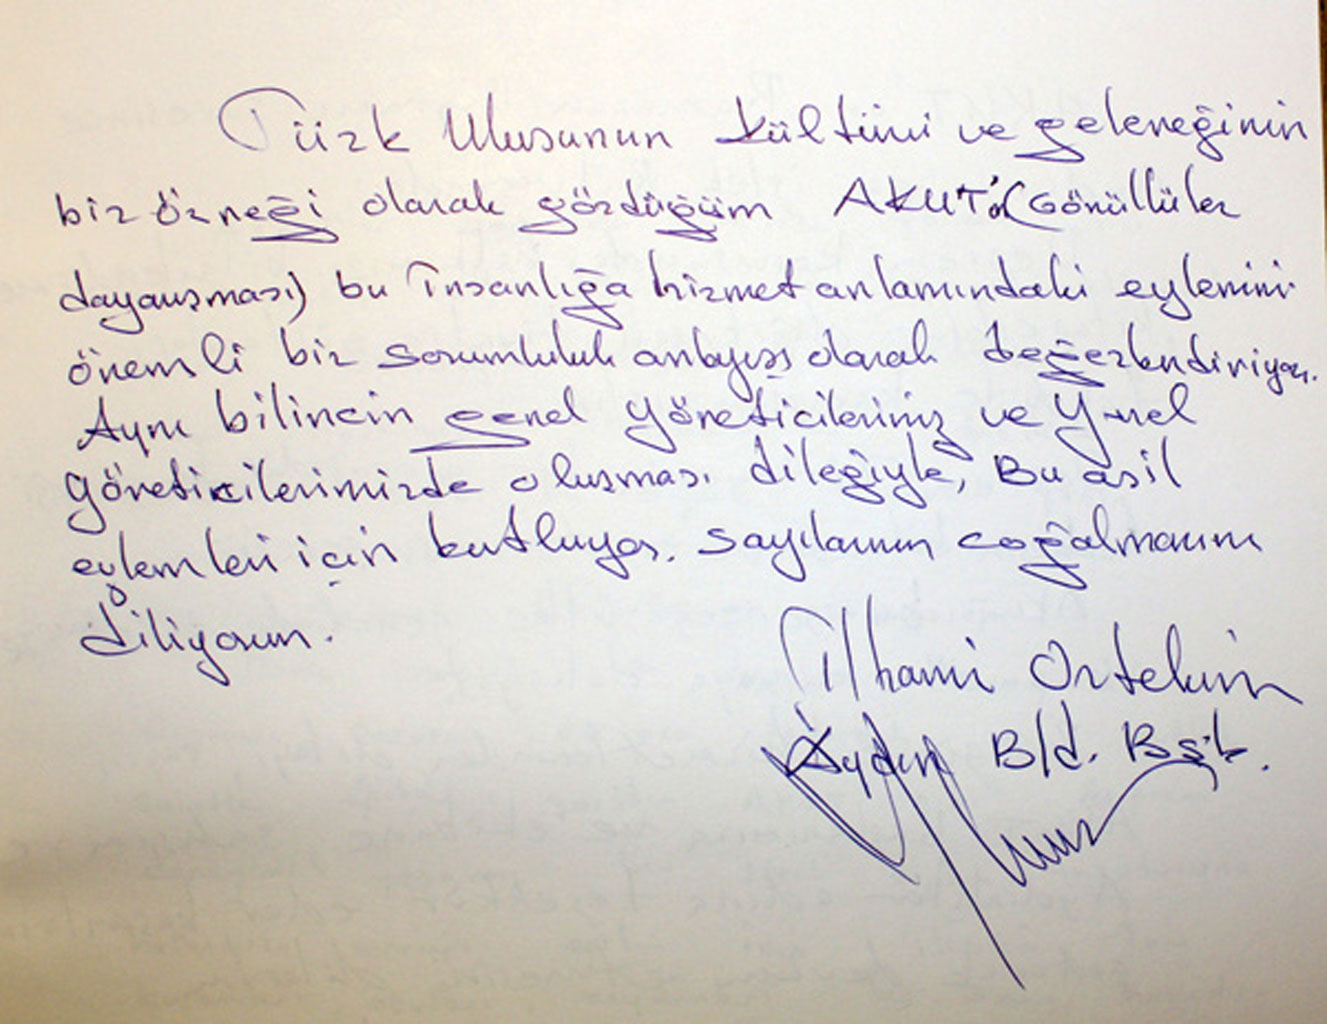 Türk Ulusunun kültürü ve geleneğinin
bir örneği olarak gördüğüm AKUT'un (Gönüllüler
dayanışması) bu İnsanlığa hizmet anlamındaki eylemini
önemli bir sorumluluk anlayışı olarak değerlendiriyor.
Aynı bilincin genel yöneticilerimiz ve yerel
yöneticilerimizde oluşması dileğiyle, Bu asil
eylemleri için kutluyor. sayılarının coğalmasını
diliyorum.
İlhami Ortekin
Aydın Bld. Bşk.